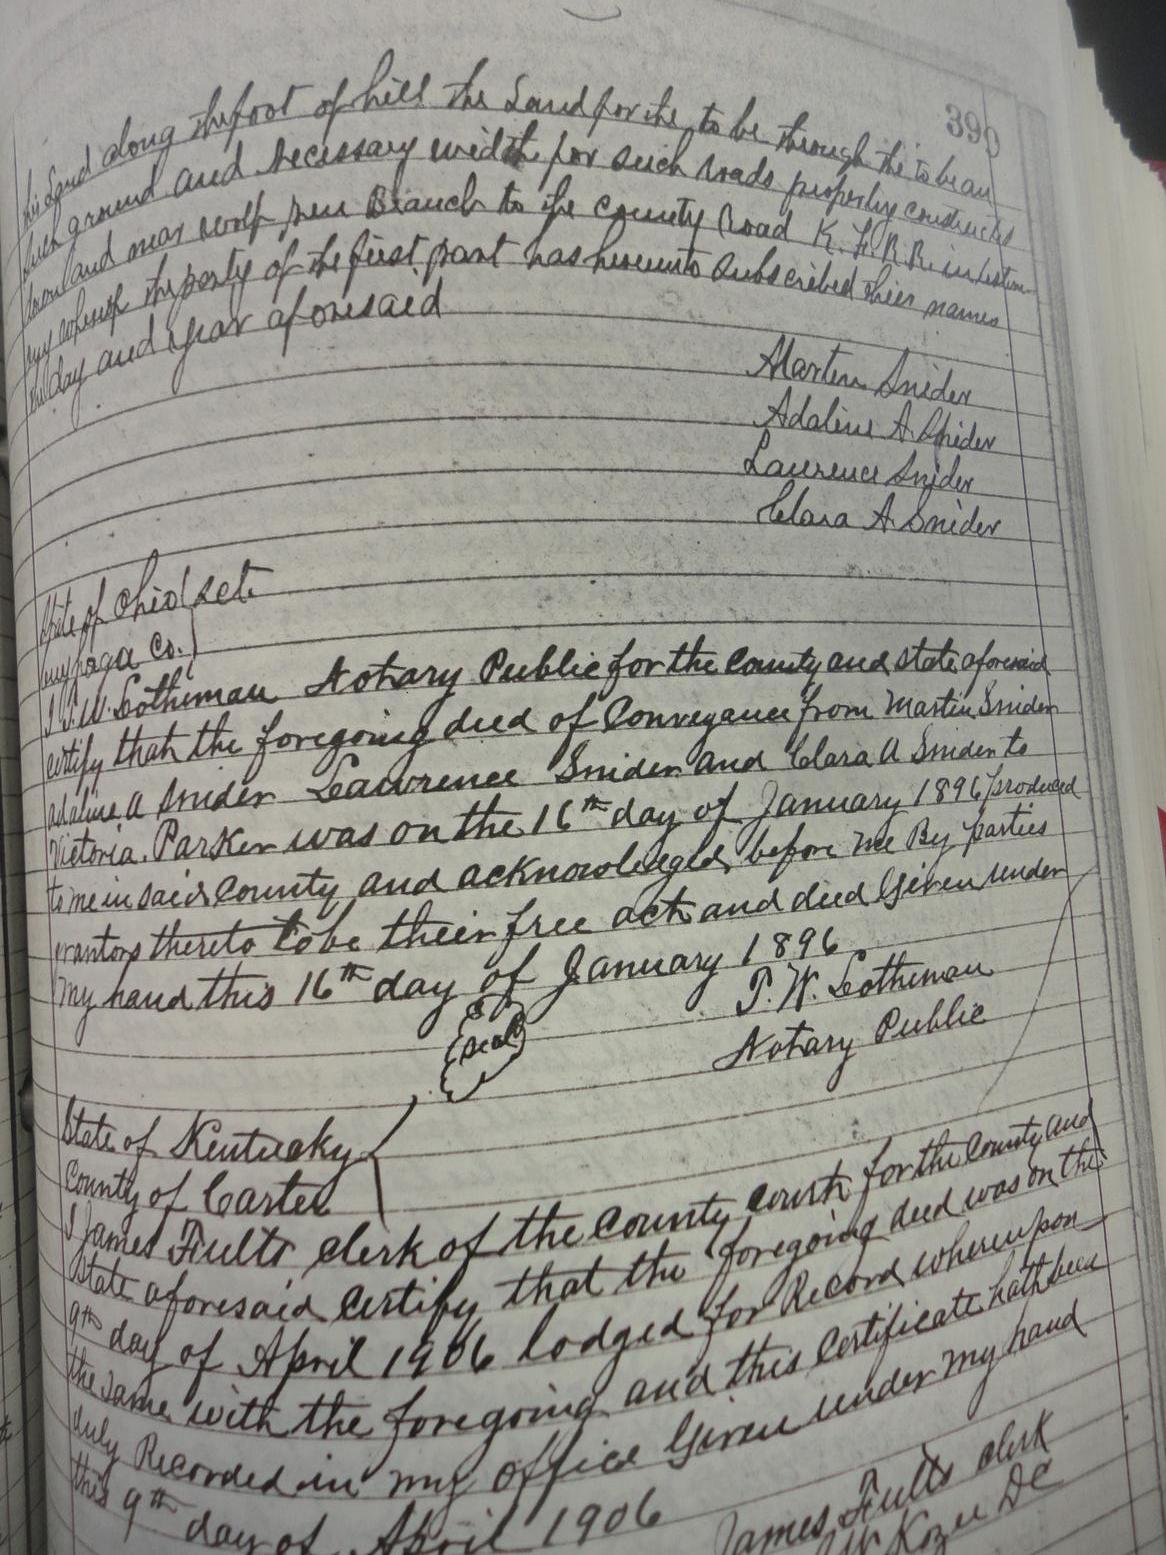 390
his Land along the foot of hill the Land for the to be through the to be an
such ground and necessary width for such roads properly constructed
down and near wolf pen Branch to the County Road K. F. R. R. in testim
ony whereof the party of the first part has hereunto subscribed their names
the day and year aforesaid
Martin Snider
Adaline A Snider
Lawrence Snider
Clara A Snider
State of Ohio } sct.
uyhoga Co.
I P. W. Lothiman Notary Public for the County and state aforesaid
certify that the foregoing deed of Conveyance from Martin Snider
adaline A Snider Lawrence Snider and Clara A Snider to
Victoria Parker was on the 16th day of January 1896 produced
to me in said County and acknowledged before me By parties
grantors thereto to be their free act and deed Given under
My hand this 16th day of January 1896
P. W. Lothiman
Seal
Notary Public
State of Kentucky }
County of Carter
I James Fults clerk of the County Court for the County and
State aforesaid Certify that the foregoing deed was on the
9th day of April 1906 lodged for Record whereupon
the same with the foregoing and this Certificate hath been
duly Recorded in my office Given under my hand
this 9th day of April 1906
James Fults clerk
DC